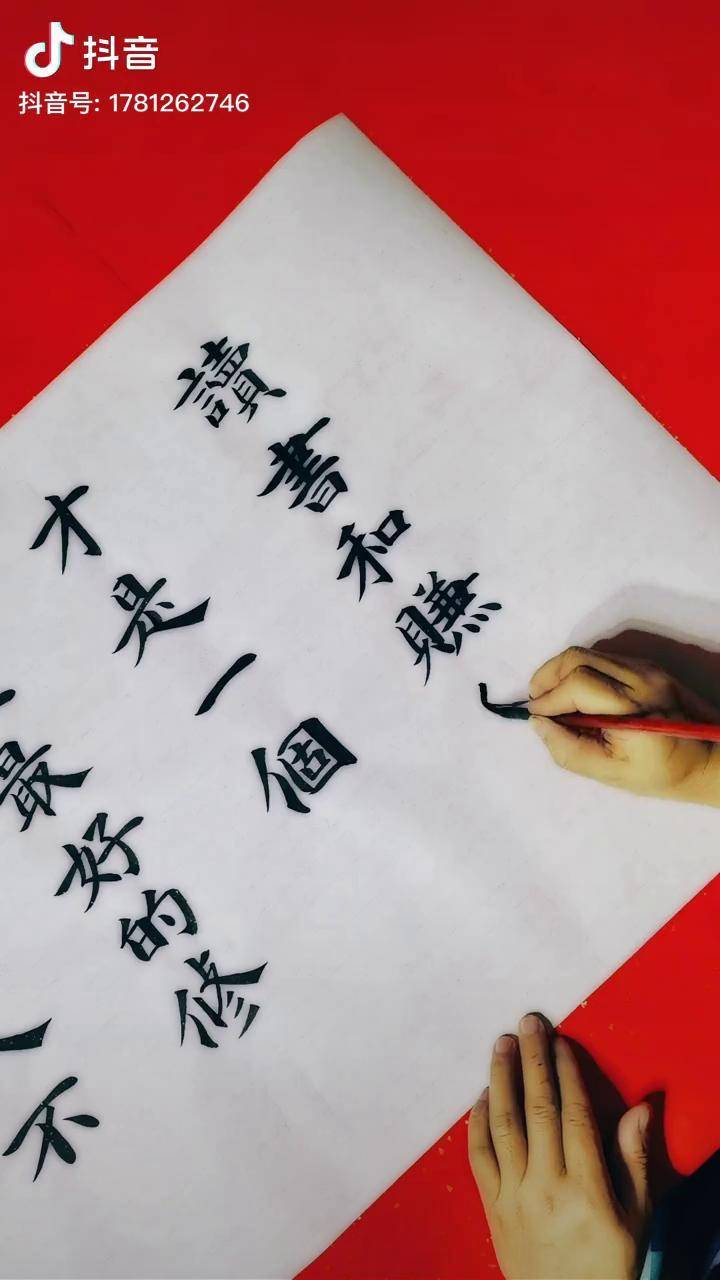 抖音
抖音号: 1781262746
讀書和賺
才是一個
最好的修
不